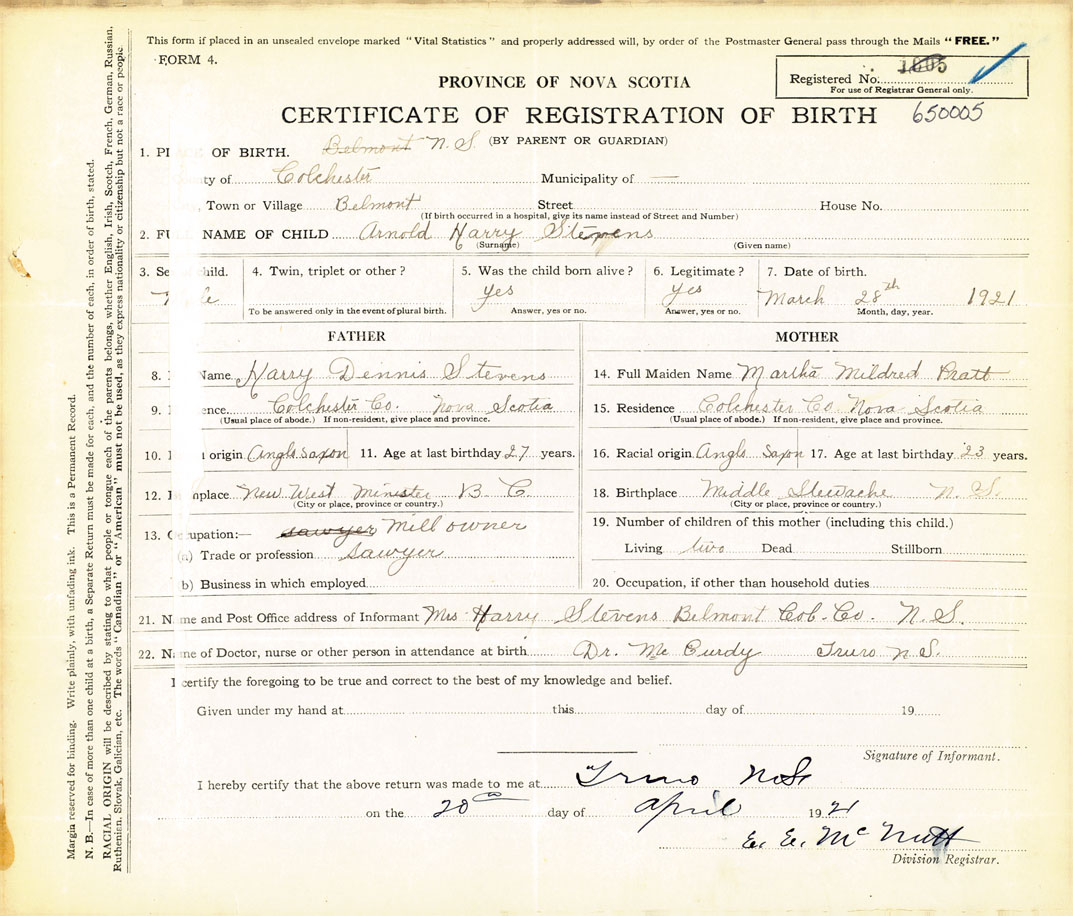 This form if placed in an unsealed envelope marked "Vital Statistics" and properly addressed will, by order of the Postmaster General pass through the Mails "FREE."
FORM 4.
Registered No. 1605
For use of Registrar General only.
PROVINCE OF NOVA SCOTIA
CERTIFICATE OF REGISTRATION OF BIRTH 650005
(BY PARENT OR GUARDIAN)
1. Pl OF BIRTH. Belmont N. S.
ty of Colchester Municipality of —
, Town or Village Belmont Street House No.
(If birth occurred in a hospital, give its name instead of Street and Number)
2. FUL NAME OF CHILD Arnold Harry Stevens
(Surname) (Given name)
3. Se child. 4. Twin, triplet or other? 5. Was the child born alive? 6. Legitimate? 7. Date of birth.
yes yes March 28th 1921
To be answered only in the event of plural birth. Answer, yes or no. Answer, yes or no. Month, day, year.
FATHER MOTHER
8. Name Harry Dennis Stevens
9. ence. Colchester Co. Nova Scotia
(Usual place of abode.) If non-resident, give place and province.
10. origin Anglo Saxon 11. Age at last birthday 27 years.
12. hplace New West Minister B. C.
(City or place, province or country.)
13. O upation:— sawyer Mill owner
(a) Trade or profession sawyer
b) Business in which employed
14. Full Maiden Name Martha Mildred Pratt
15. Residence Colchester Co Nova Scotia
(Usual place of abode.) If non-resident, give place and province.
16. Racial origin Anglo Saxon 17. Age at last birthday 23 years.
18. Birthplace Middle Stewache N. S.
(City or place, province or country.)
19. Number of children of this mother (including this child.)
Living two Dead Stillborn
20. Occupation, if other than household duties
21. N me and Post Office address of Informant Mrs Harry Stevens Belmont Col. Co. N. S.
22. N me of Doctor, nurse or other person in attendance at birth Dr. McCurdy Truro N S.
I certify the foregoing to be true and correct to the best of my knowledge and belief.
Given under my hand at this day of 19
Signature of Informant.
I hereby certify that the above return was made to me at Truro N.S.
on the 20th day of April 1921
E. E. McNutt
Division Registrar.
Margin reserved for binding. Write plainly, with unfading ink. This is a Permanent Record.
N. B.—In case of more than one child at a birth, a Separate Return must be made for each, and the number of each, in order of birth, stated.
RACIAL ORIGIN will be described by stating to what people or tongue each of the parents belongs, whether English, Irish, Scotch, French, German, Russian,
Ruthenian, Slovak, Galician, etc. The words "Canadian" or "American" must not be used, as they express nationality or citizenship but not a race or people.